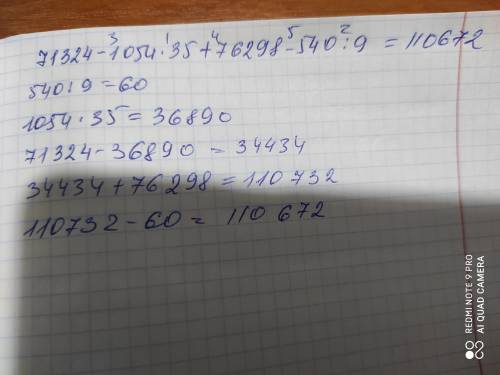 71324-1054·35+76298-540:9=110672
3 1 4 5 2
540:9=60
1054·35=36890
71324-36890=34434
34434+76298=110732
110732-60=110672
REDMI NOTE 9 PRO
AI QUAD CAMERA